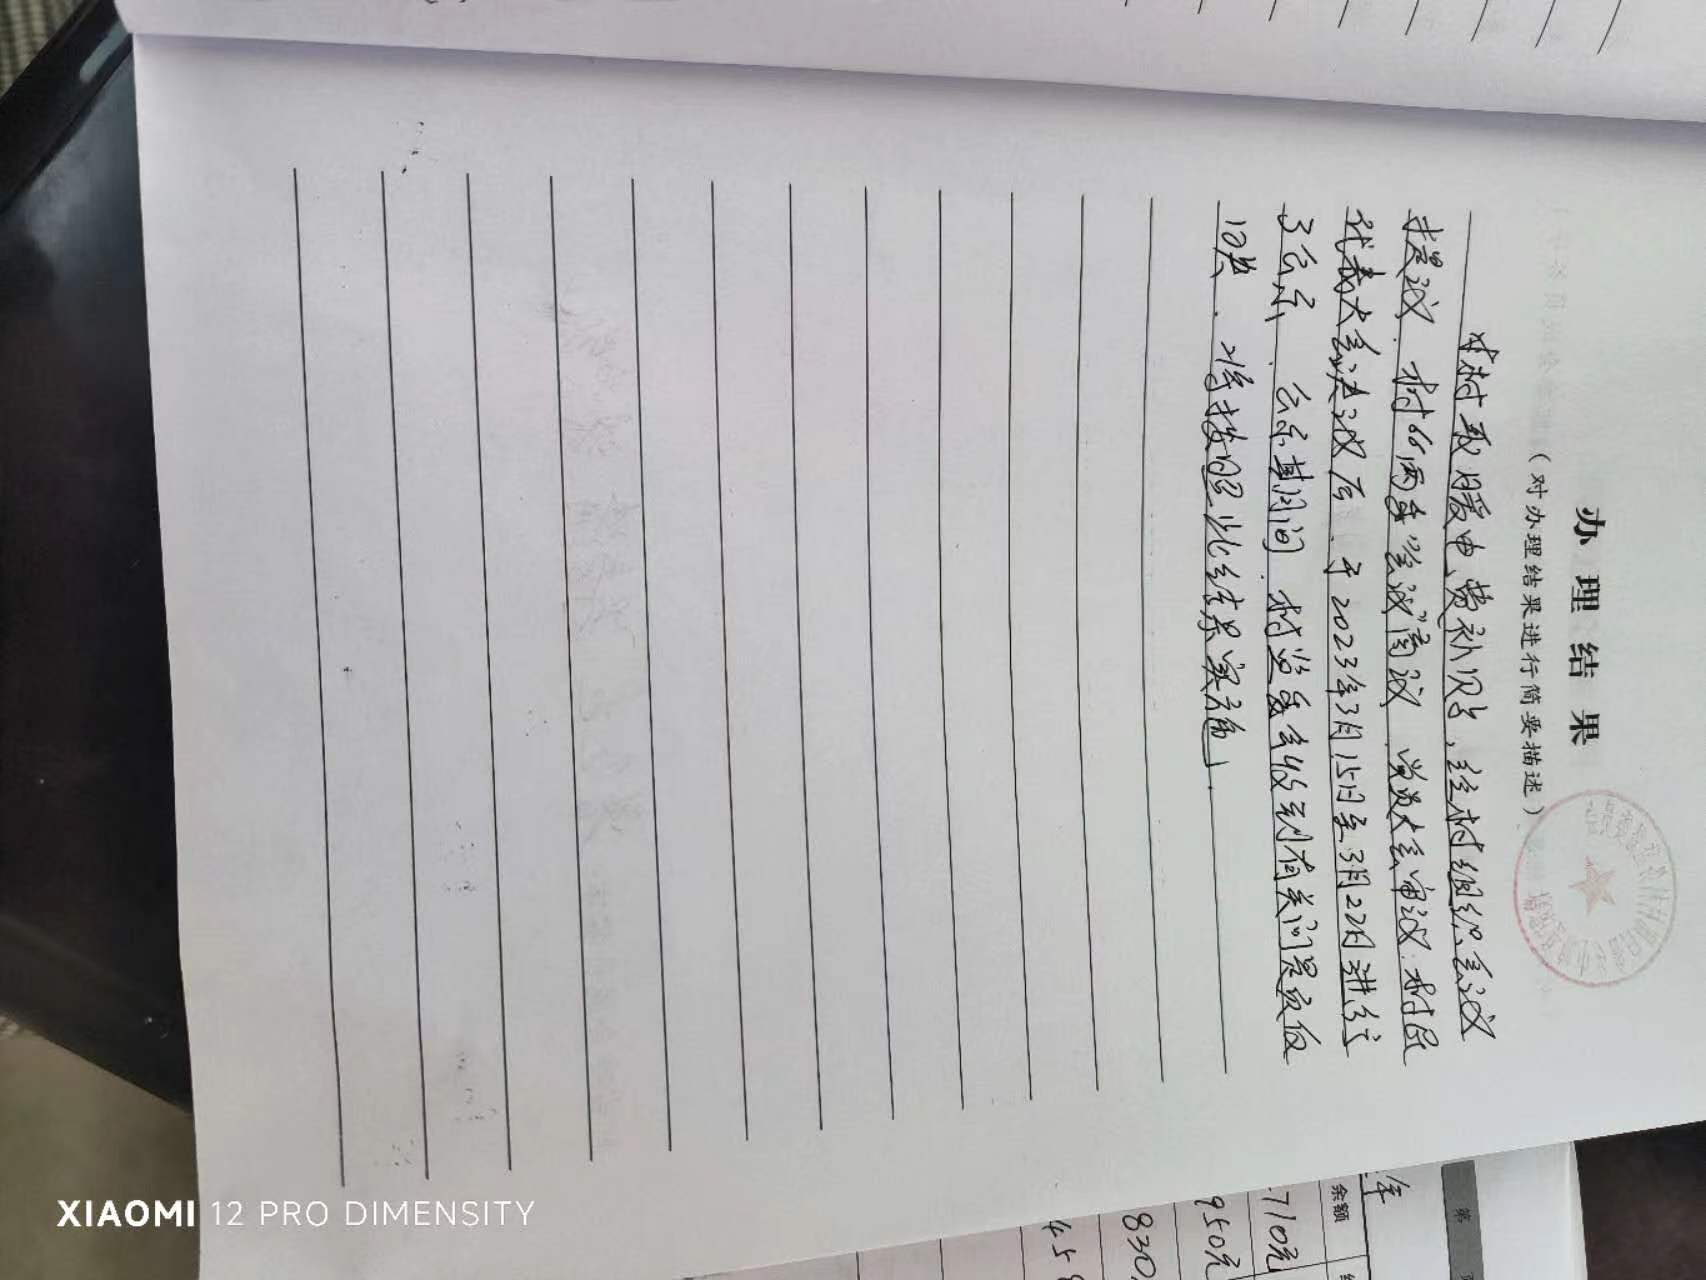 办理结果
（对办理结果进行简要描述）
本村取暖电费补贴，经村组织会议
提议，村“两委”会议商议，党员大会审议，村民
代表大会决议后，于2023年3月15日至3月22日进行
了公示，公示期间，村监委会收到有关问题反馈
10共，将按照此结果实施。
年
第
余额
710元
950元
830.
458
XIAOMI 12 PRO DIMENSITY